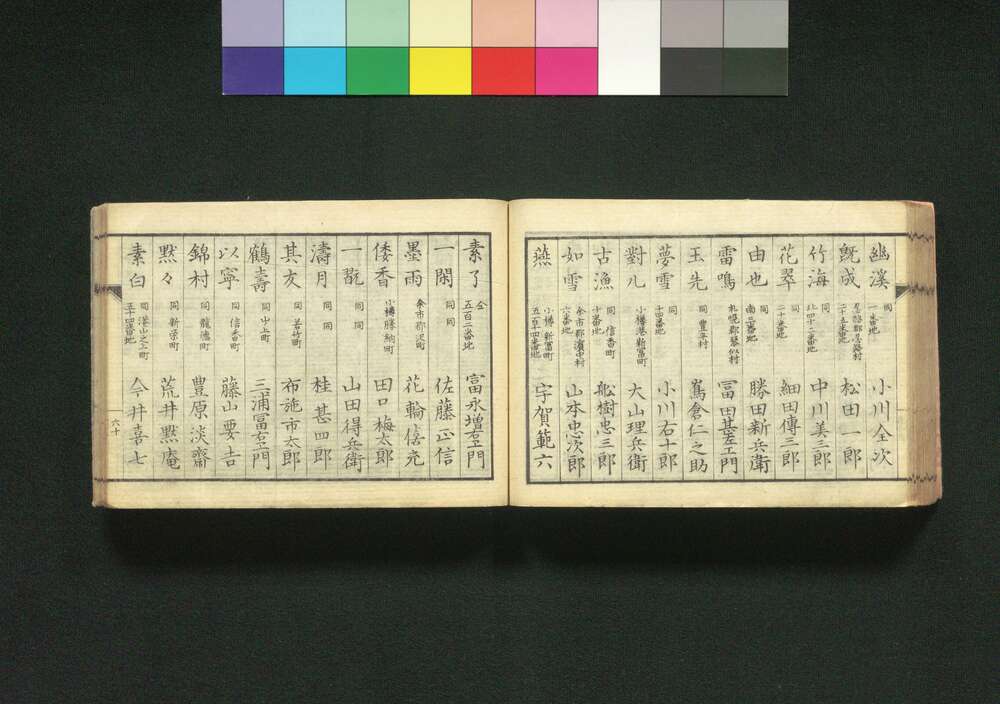 幽溪 同 一番地 小川全次
既成 忍路郡忍路村 二十五番地 松田一郎
竹海 同 北四十二番地 中川美三郎
花翠 同 二十番地 細田傳三郎
由也 同 南三番地 勝田新兵衛
雷鳴 札幌郡琴似村 冨田甚左エ門
玉先 同 豊平村 鳥倉仁之助
夢雪 同 十四番地 小川右十郎
對凡 小樽港新冨町 大山理兵衛
古漁 同 信香町 十番地 舩樹忠三郎
如雪 余市郡濱中村 六番地 山本忠次郎
燕 小樽新冨町 五百十四番地 宇賀範六
素了 仝 五百二番地 富永増右エ門
一閑 同 同 佐藤正信
墨雨 余市郡沢町 花輪信充
倭香 小樽勝納町 田口梅太郎
一翫 同 同 山田得兵衛
濤月 同 同 桂甚四郎
其友 同 若竹町 布施市太郎
鶴壽 同 中上町 三浦冨右エ門
以寧 同 信香町 藤山要吉
錦村 同 龍徳町 豊原淡齋
黙々 同 新榮町 荒井黙庵
素白 同 港山之上町 五十四番地 今井喜七
六十